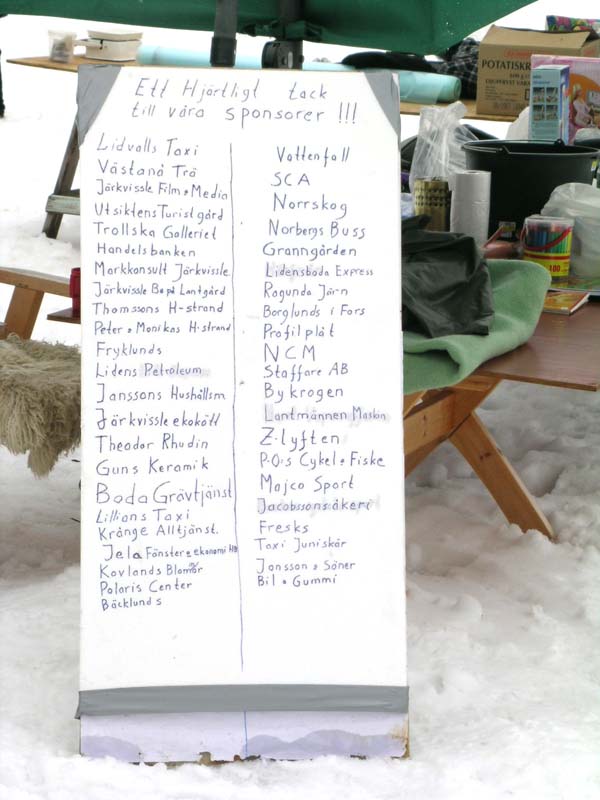 Ett Hjärtligt tack
till våra sponsorer !!!
Lidvalls Taxi
Västanå Trä
Järkvissle Film & Media
Utsiktens Turistgård
Trollska Galleriet
Handelsbanken
Markkonsult Järkvissle
Järkvissle Lantgård
Thomssons H-strand
Peter & Monikas H-strand
Fryklunds
Lidens Petroleum
Janssons Hushållsm
Järkvissle ekokött
Theodor Rhudin
Guns Keramik
Boda Grävtjänst
Lillians Taxi
Krånge Alltjänst.
Jela Fönster & ekonomi HB
Kovlands Blommor
Polaris Center
Bäcklunds
Vattenfall
SCA
Norrskog
Norbergs Buss
Granngården
Lidensboda Express
Ragunda Järn
Borglunds i Fors
Profilplåt
NCM
Staffare AB
Bykrogen
Lantmännen Maskin
Z-lyften
P-O:s Cykel & Fiske
Majco Sport
Jacobssons åkeri
Fresks
Taxi Juniskär
Jonsson & Söner
Bil & Gummi
POTATISKR
100